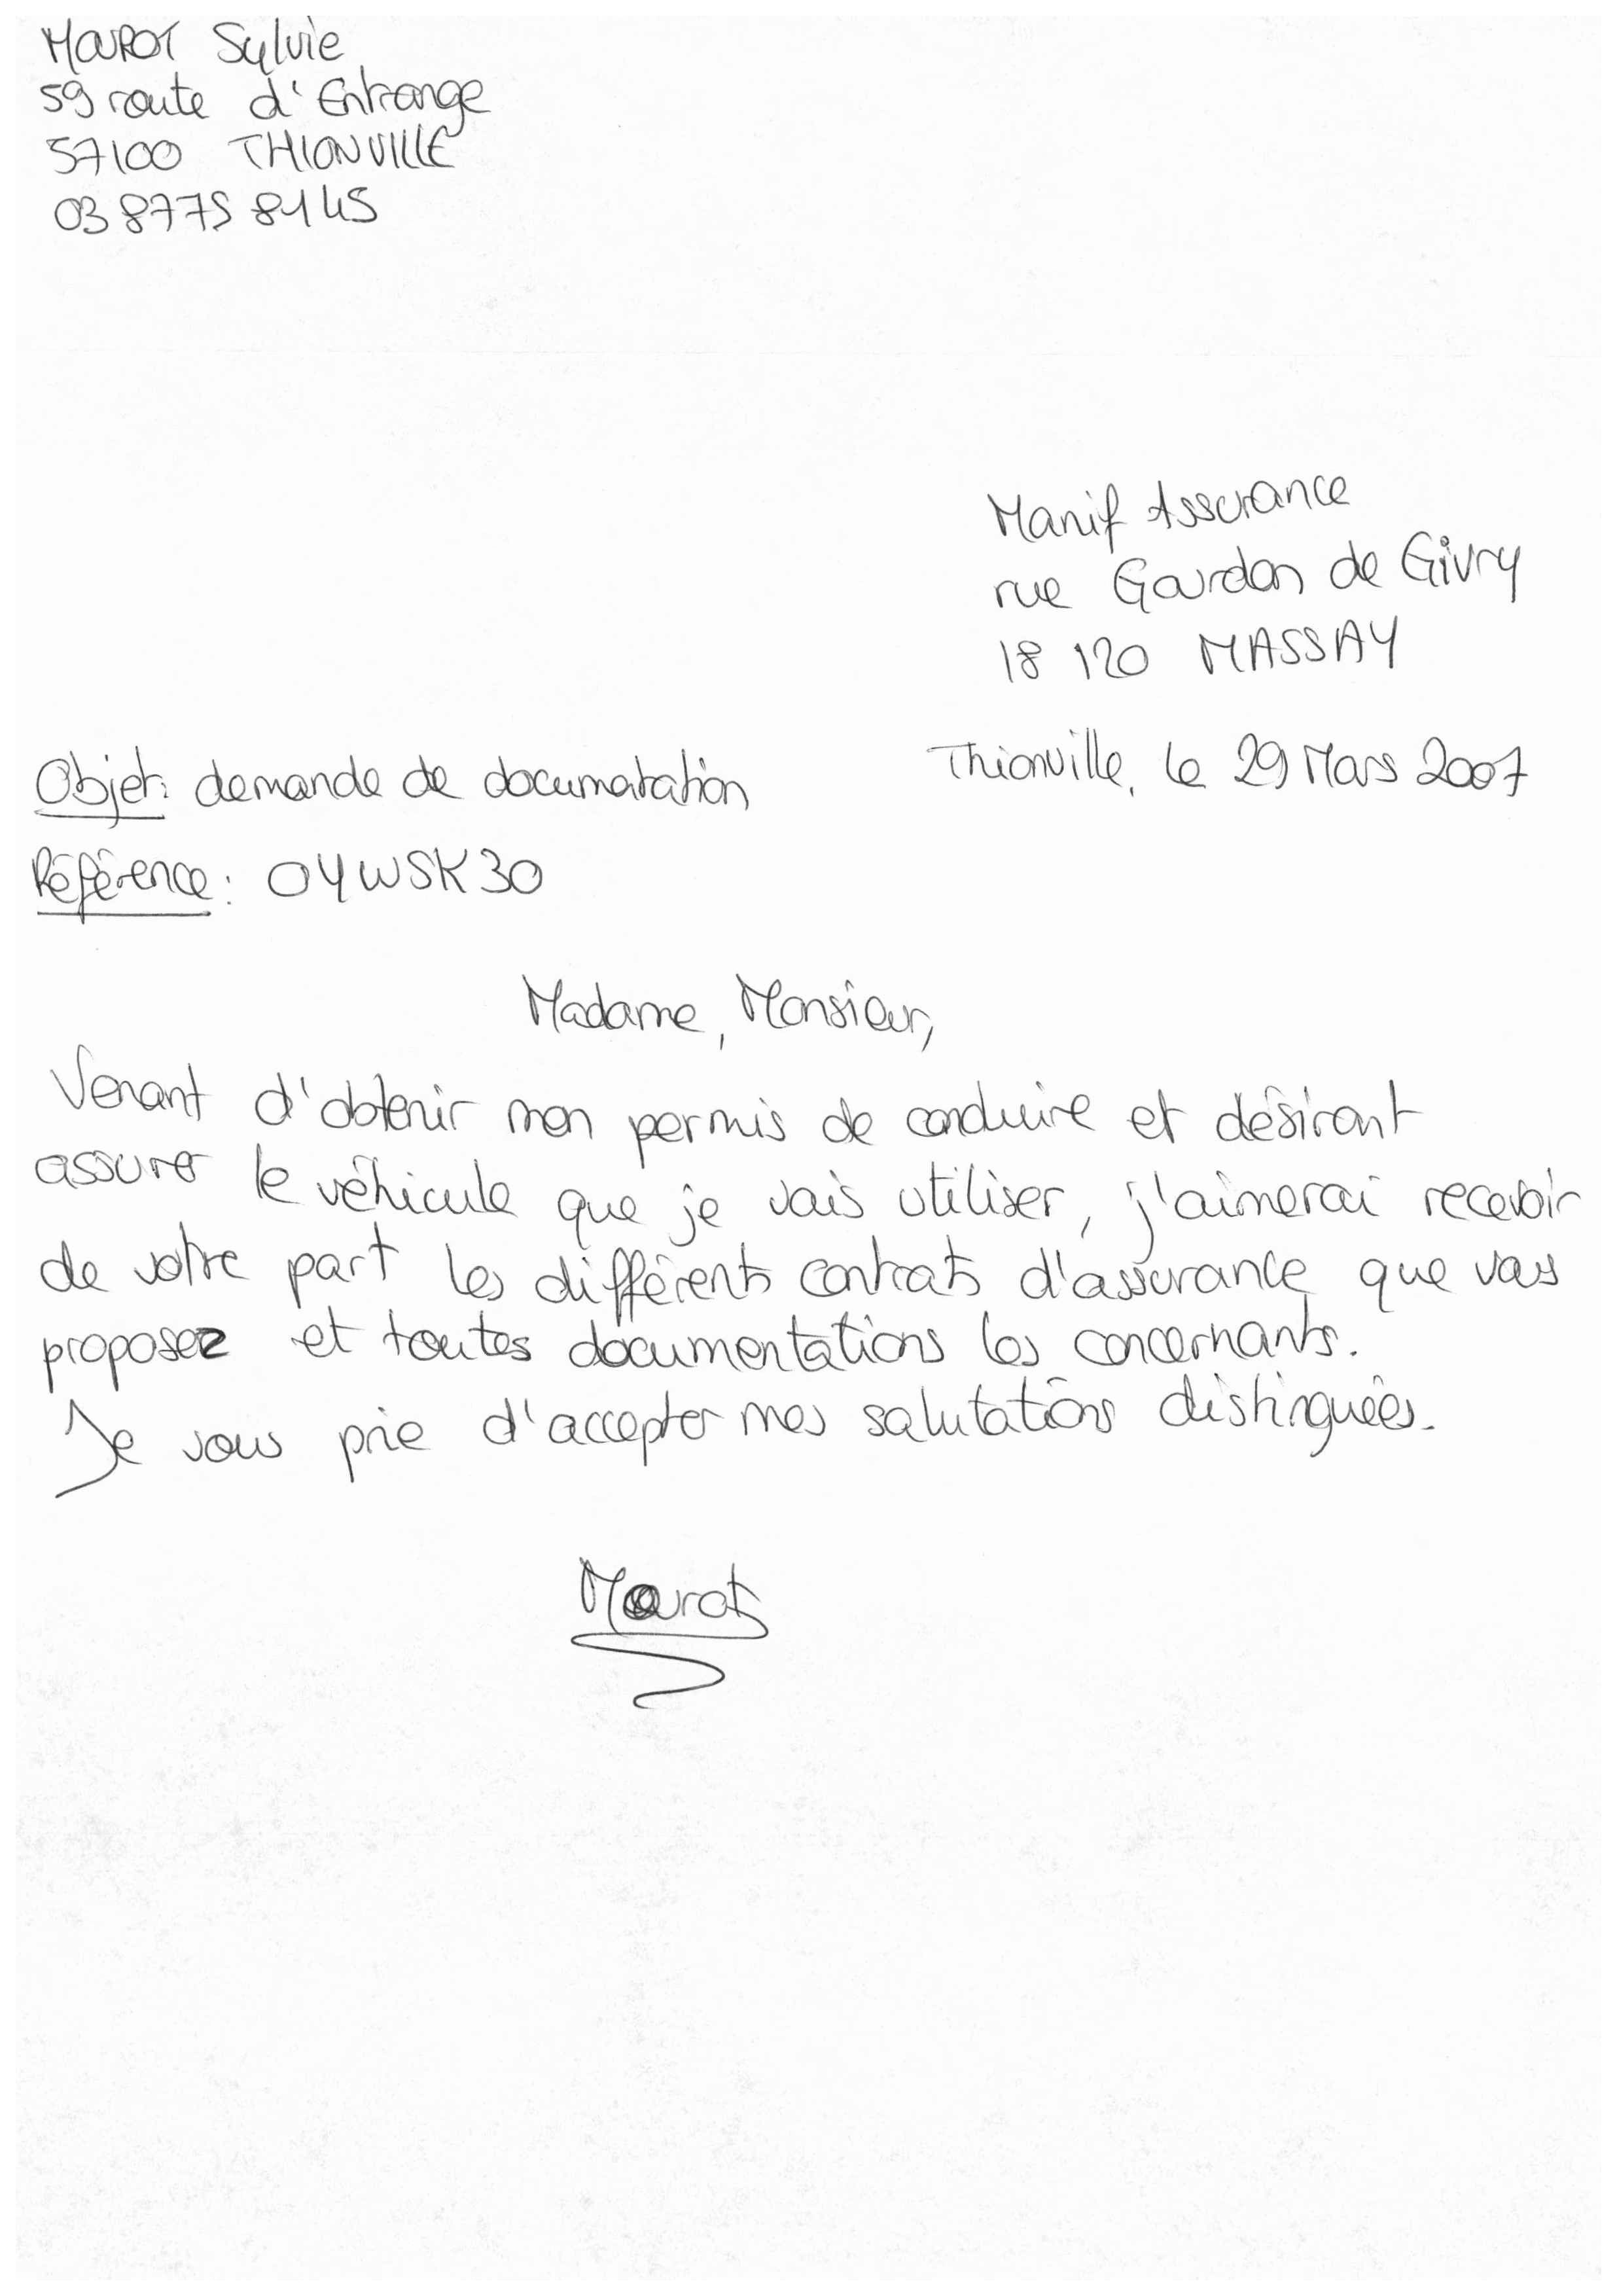 MOUROT Sylvie
59 route d'Entrange
57100 THIONVILLE
03 87 75 81 45
Manif Assurance
rue Gourdon de Givry
18 120 MASSAY
Thionville, le 29 Mars 2007
Objet: demande de documatation
Référence: OYWSK30
Madame, Monsieur,
Venant d'obtenir mon permis de conduire et désirant
assurer le véhicule que je vais utiliser, j'aimerai recevoir
de votre part les différents contrats d'assurance que vous
proposez et toutes documentations les concernants.
Je vous prie d'accepter mes salutations distinguées.
Mourot